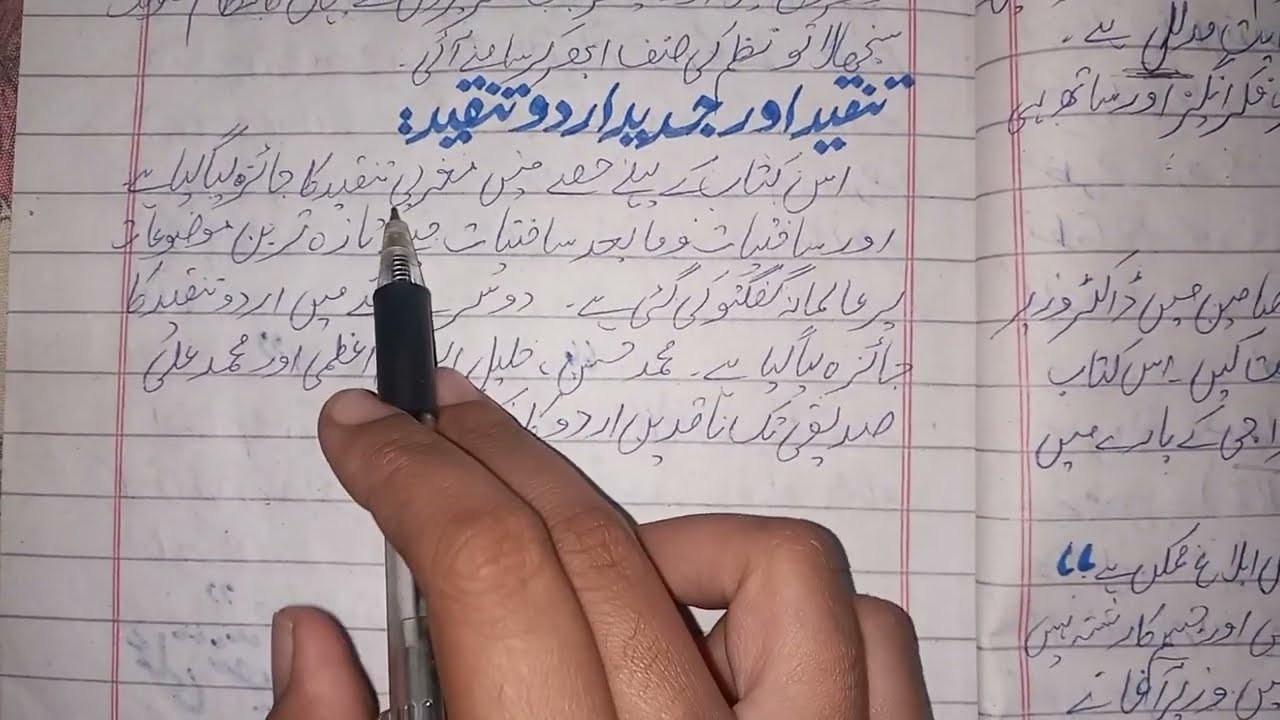 سنبھالا تو نظم کی صنف ابھر کر سامنے آئی۔
تنقید اور جدید اردو تنقید:
اس کتاب کے پہلے حصے میں مغربی تنقید کا جائزہ لیا گیا ہے
اور ساختیات و ما بعد ساختیات تازہ ترین موضوعات
پر عالمانہ گفتگو کی گئی ہے۔ میں اردو تنقید کا
جائزہ لیا گیا ہے۔ محمد حسن، خلیل اعظمی اور محمد علی
صدیقی تک ناقدین اردو
مدلل ہے۔
فکر انگیز اور ساتھ ہی
میں ڈاکٹر وزیر
کیں۔ اس کتاب
کے بارے میں
ابلاغ ممکن ہے"
اور جسم کا رشتہ ہیں
وزیر آغا نے